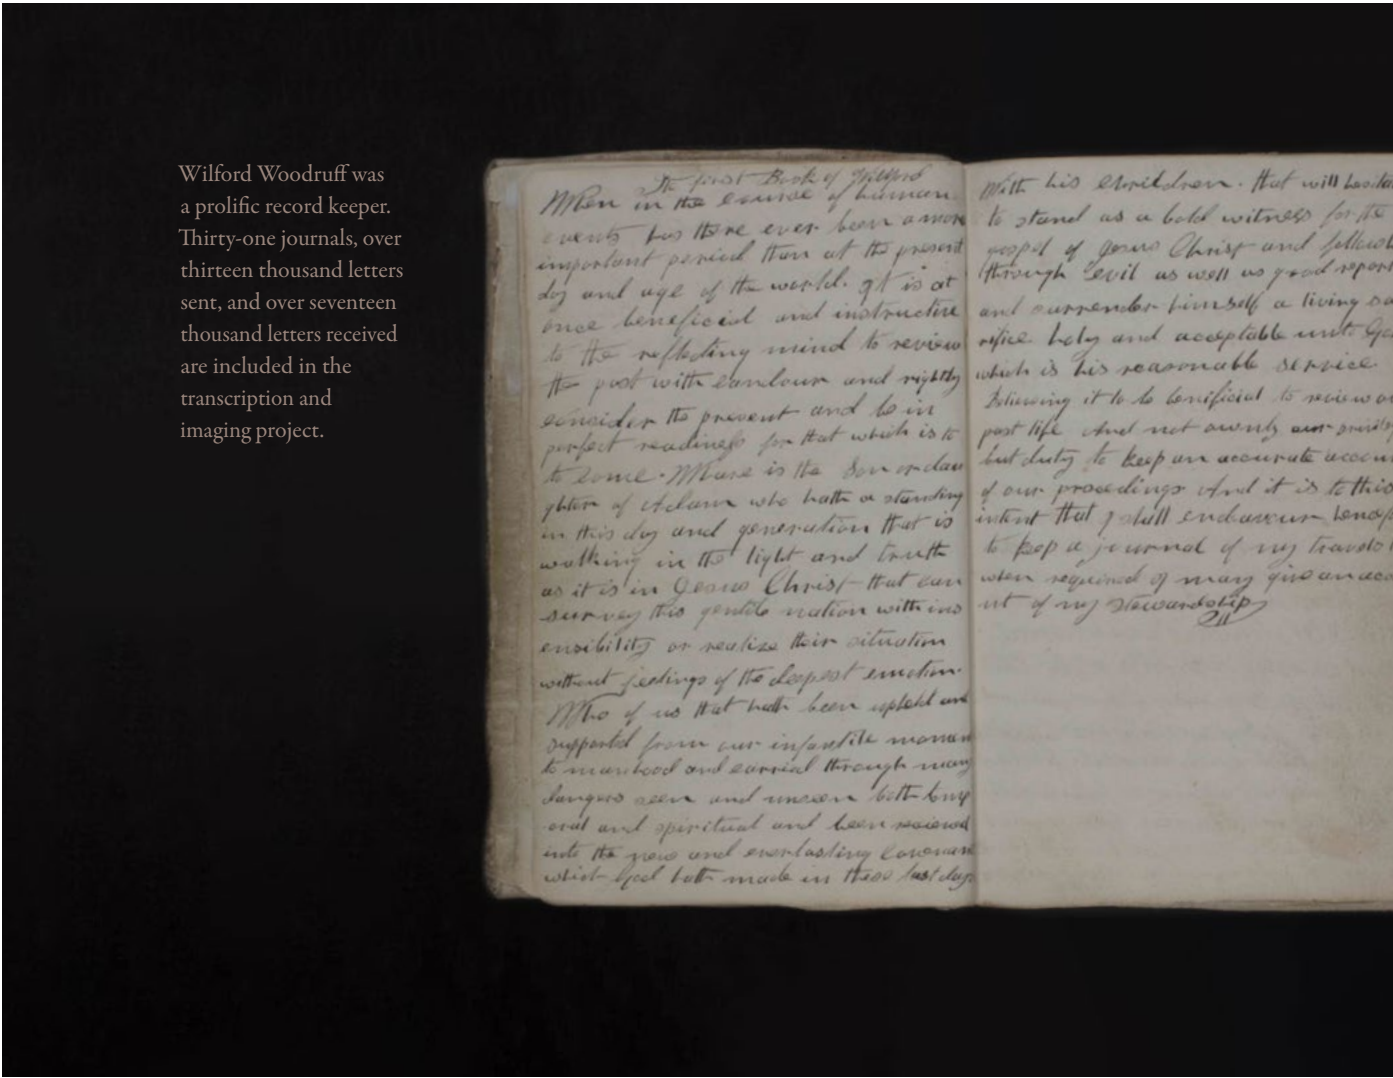 Wilford Woodruff was
a prolific record keeper.
Thirty-one journals, over
thirteen thousand letters
sent, and over seventeen
thousand letters received
are included in the
transcription and
imaging project.
The first Book of Willford
When in the course of human
events has there ever been a more
important period than at the present
day and age of the world. It is at
once beneficial and instructive
to the reflecting mind to review
the past with candour and rightly
consider the present and be in
perfect readiness for that which is to
to come. Whare is the Son or dau
ghter of Adam who hath a standing
in this day and generation that is
walking in the light and truth
as it is in Jesus Christ that can
survey this gentile nation with ins
ensibility or realize their situation
without feelings of the deepest emotion
Who of us that hath been upheld and
supported from our infantile moment
to manhood and carried through many
dangers seen and unseen both temp
oral and spiritual and been received
into the new and everlasting Covenant
which God hath made in these last days
With his children. that will hesita
to stand as a bold witness for the
gospel of Jesus Christ and follow
through evil as well as good report
and surrender himself a living sa
rifice holy and acceptable unto Go
which is his reasonable service
Believing it to be benificial to review our
past life And not ownly our privile
but duty to keep an accurate accou
of our procedings And it is to this
intent that I shall endeavour
to keep a journal of my travels
when required of may give an acc
unt of my stewardship